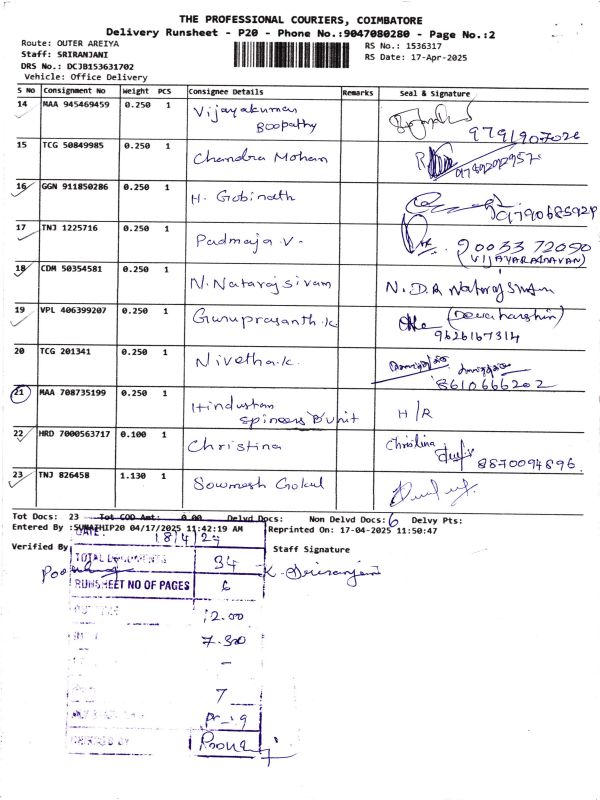 THE PROFESSIONAL COURIERS, COIMBATORE
Delivery Runsheet - P20 - Phone No.:9047080280 - Page No.:2
Route: OUTER AREIYA
Staff: SRIRANJANI
DRS No.: DCJB153631702
Vehicle: Office Delivery
RS No.: 1536317
RS Date: 17-Apr-2025
S No Consignment No Weight PCS Consignee Details Remarks Seal & Signature
14 MAA 945469459 0.250 1 Vijayakumar Boopathy 9791907026
15 TCG 50849985 0.250 1 Chandra Mohan
16 GGN 911850286 0.250 1 H. Gobinath 9790685924
17 TNJ 1225716 0.250 1 Padmaja V. 90033 72090
(VIJAYARAGAVAN)
18 CDM 50354581 0.250 1 N. Natarajsivam
19 VPL 406399207 0.250 1 Guruprasanth.k (Devadharshin)
9626167314
20 TCG 201341 0.250 1 Nivetha.k. 8610666202
21 MAA 708735199 0.250 1 Hindustan Spineers B unit H/R
22 HRD 7000563717 0.100 1 Christina Christina 8870094896
23 TNJ 826458 1.130 1 Sowmesh Gokul
Tot Docs: 23 Tot COD Amt: 0.00 Delvd Docs: Non Delvd Docs: 6 Delvy Pts:
Entered By :SUMATHIP20 04/17/2025 11:42:19 AM Reprinted On: 17-04-2025 11:50:47
DATE: 18/4/24
Verified By Staff Signature
TOTAL DOCUMENTS 94
K. Sriranjani
RUNSHEET NO OF PAGES 6
12.00
7.300
-
7
CHECKED BY